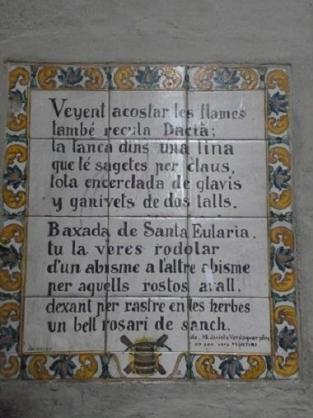 Veyent acostar les flames
també recula Daciá;
la lanca dins una tina
que té sagetes per claus,
tota encerclada de glavis
y ganivets de dos talls.
Baxada de Santa Eularia,
tu la veres rodolar
d'un abisme a l'altre abisme
per aquells rostos avall,
dexant per rastre en les herbes
un bell rosari de sanch.
de M. Jacinto Verdaguer pbre